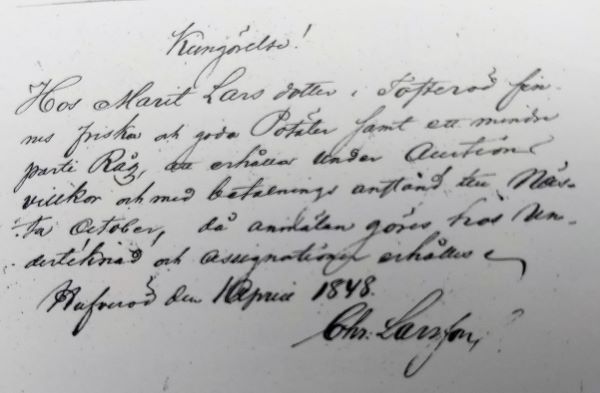 Kungörelse!
Hos Marit Lars dotter i Töfteröd fin-
nes friska och goda Potäter samt ett mindre
parti Råg, att erhållas under Auctions
villkor och med betalnings anstånd till Näs-
ta October, då anmälan göres hos Un-
dertéknad och Assignationer erhålles
Hafveröd den 1 April 1848.
Chr. Larsson,